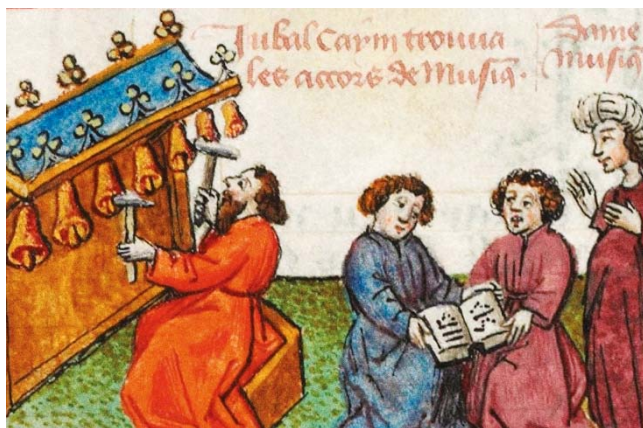 Jubal Caym trouva
les accors de Musiq̃.
Dame
musiq̃